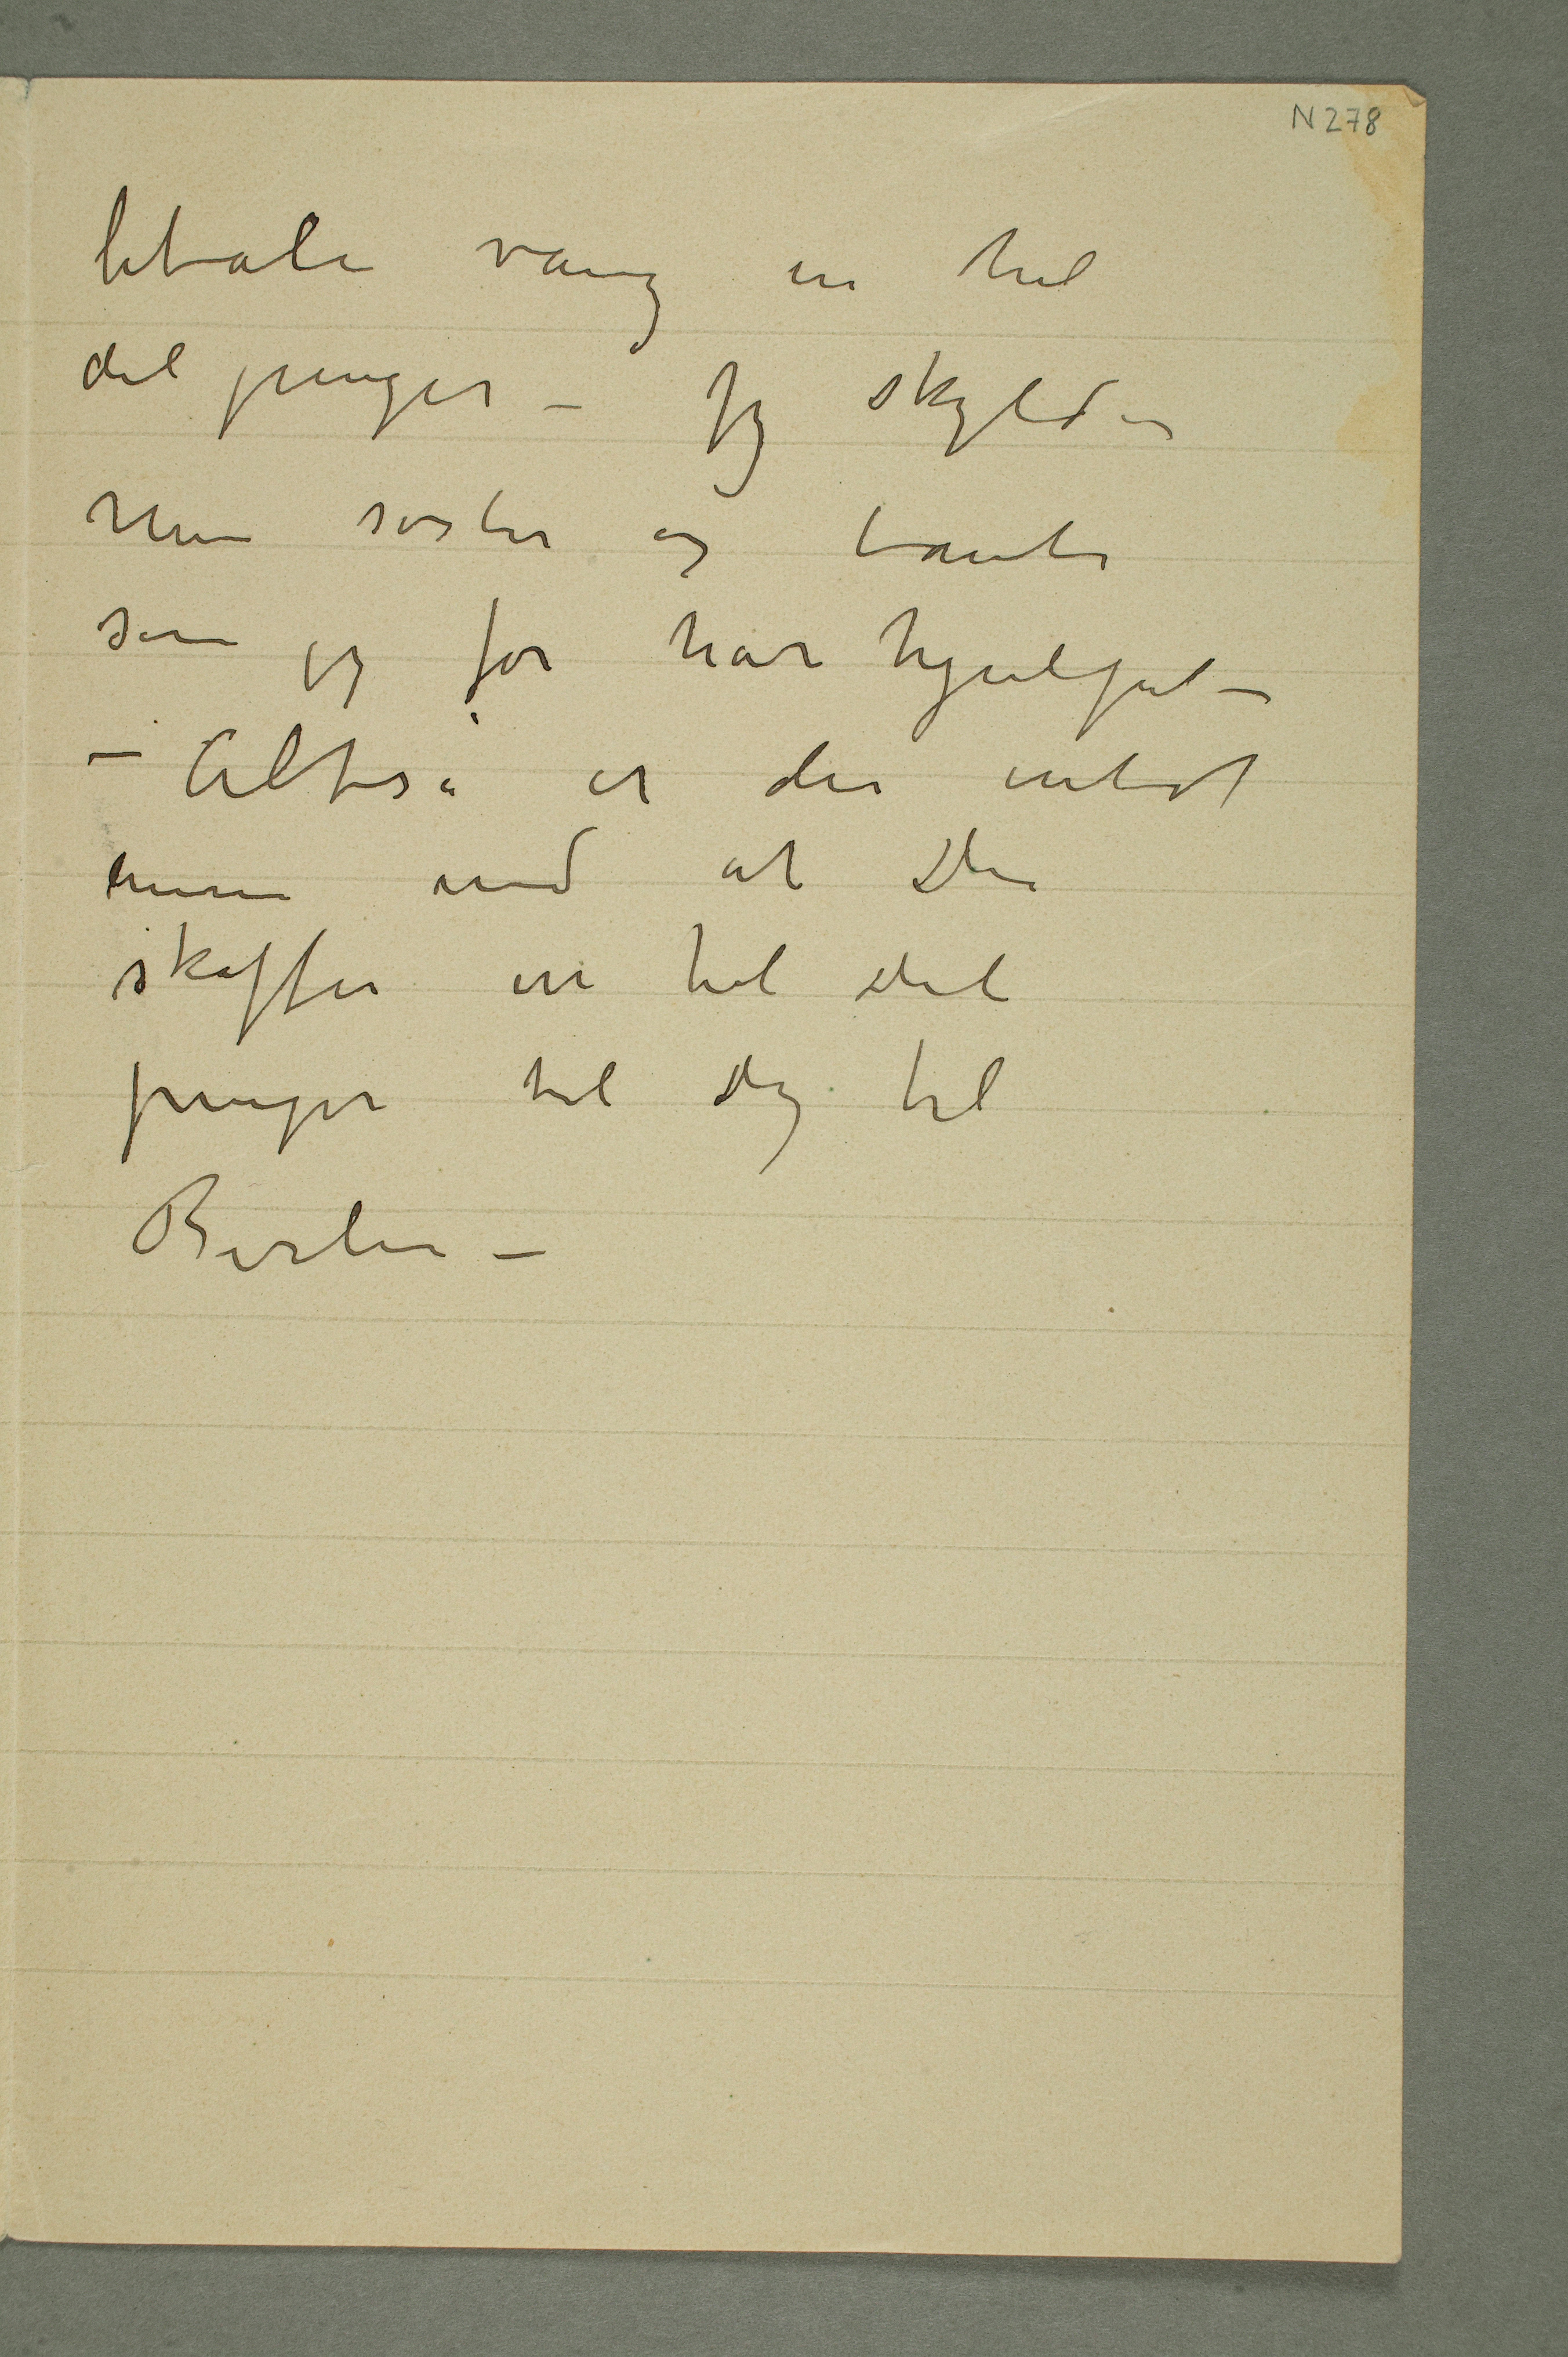 N 278
betale Vang en hel
del penger – Jeg skylder
min søster og tante
som jeg før har hjulpet –
– Altså er der intet
mere end at Du
skaffer en hel del
penger til dig til
Berlin –